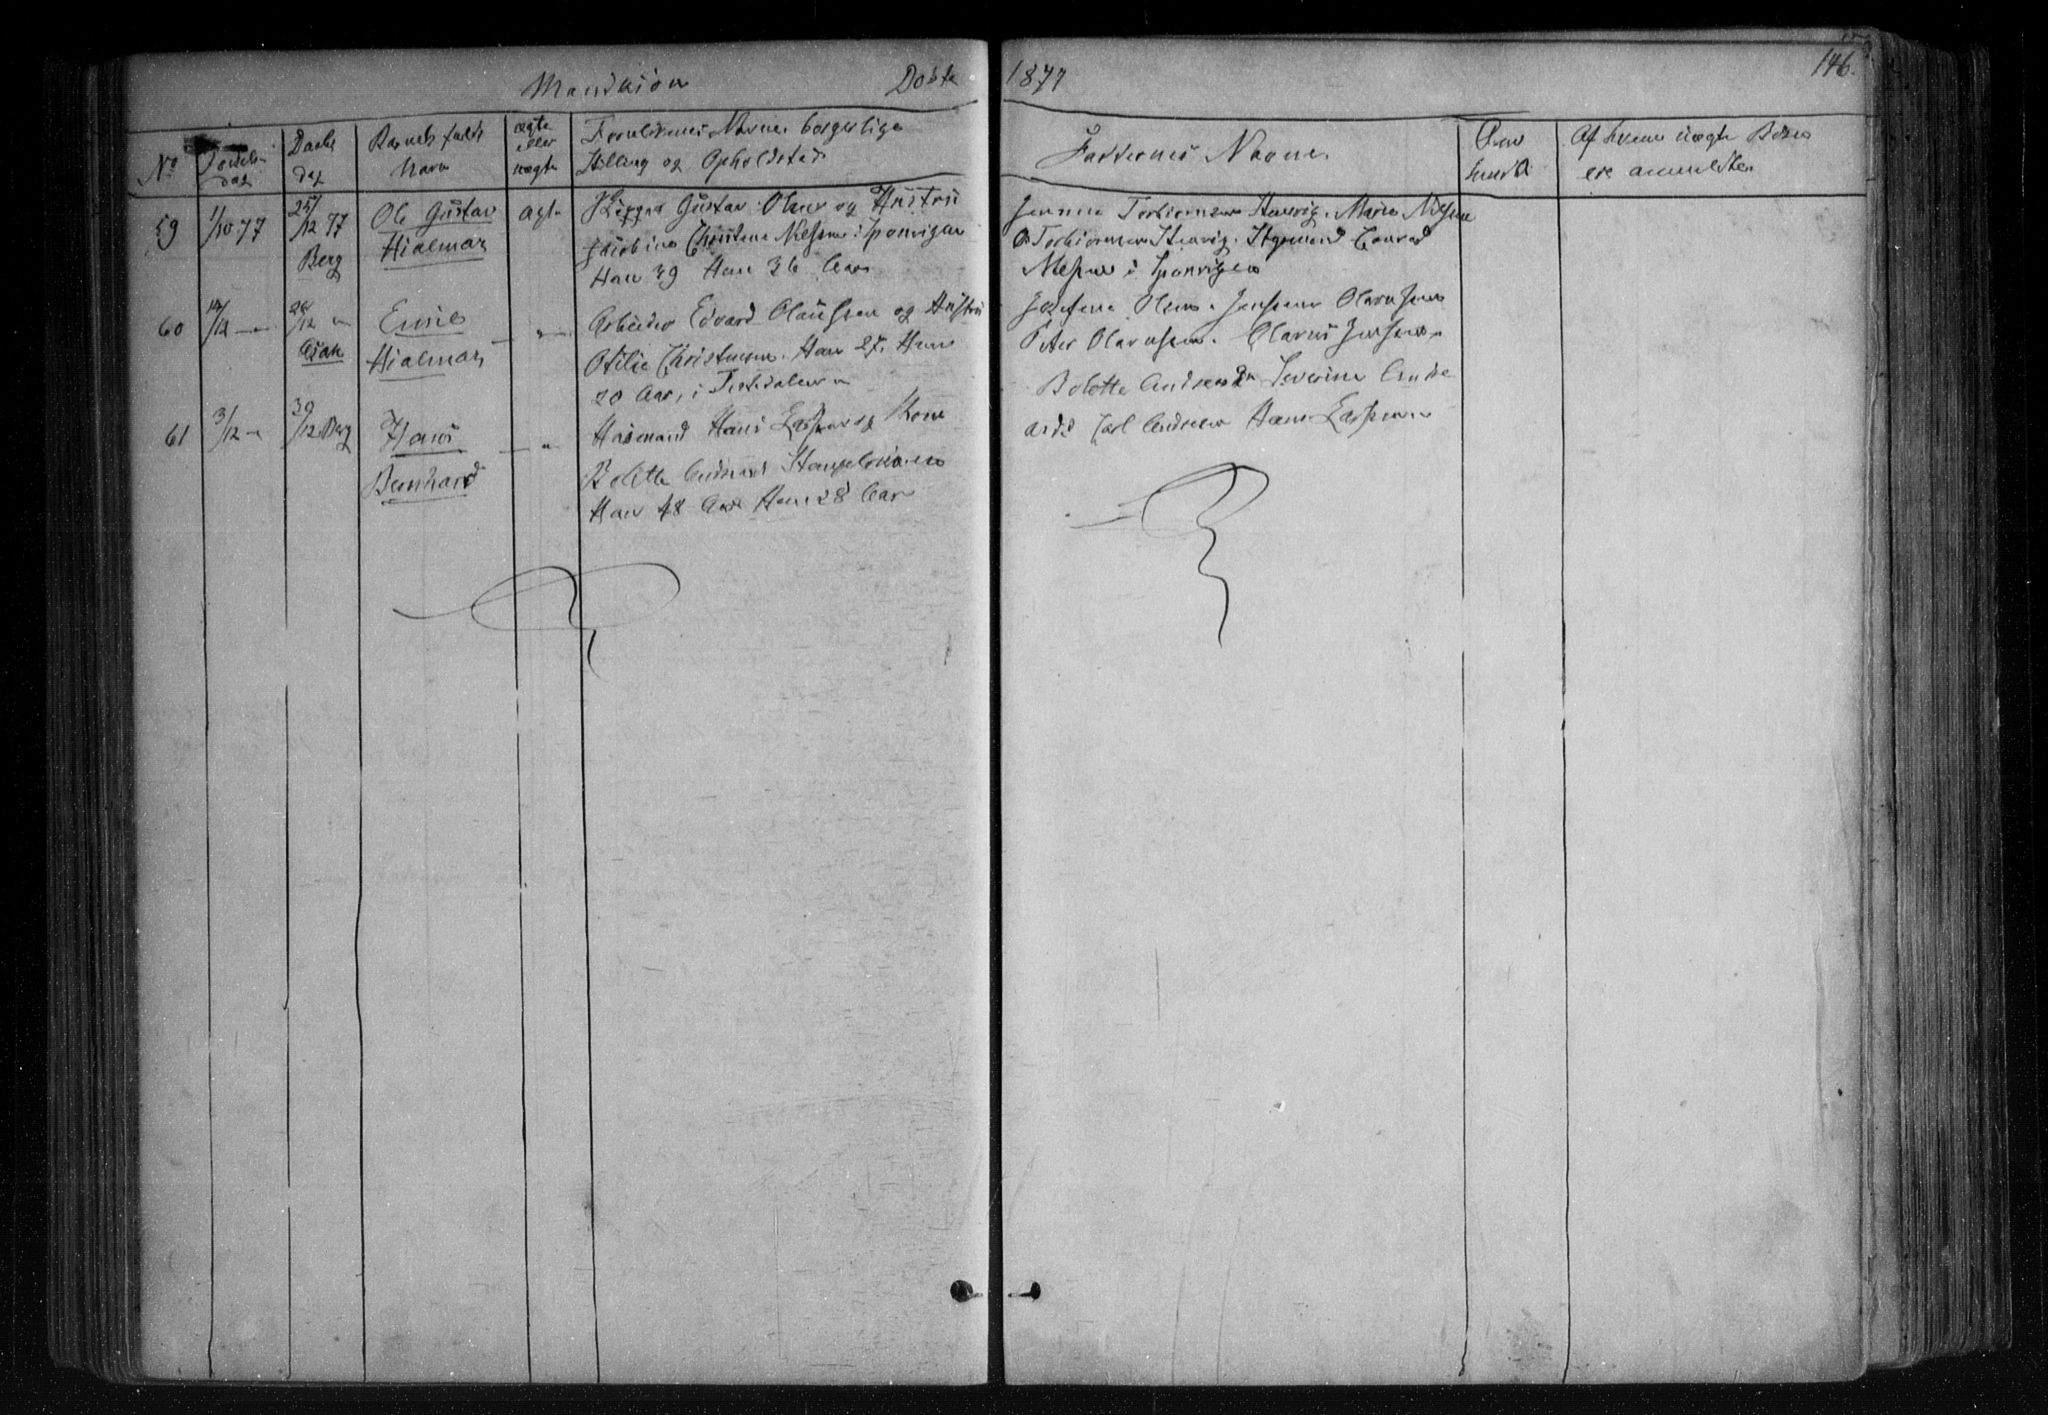 Mandkiøn Døbte 1877 146.
No Fødsels dag Daabs dag Barnets fulde Navn ægte eller uægte Forældrenes Navne borgerlige Stilling og Opholdsted
Faddernes Navne. Af hvem uægte Børn ere anmeldte
59 1/10 77 25/12 77 Berg Ole Gustav Hialmar ægte
Gustav Olsen og Hustru
Christine Nilsen i Sponvigen
Han 39 Hun 36 Aar
Torbiornsen Stenvig. Marie Nilsen
O. Torbiornsen Stenvig. Conrad
Nilsen i Sponvigen
60 12/12 — 26/12 " Asak Emil Hialmar — " —
Arbeider Edvard Olausen og Hustru
Otilie Christensen. Han 27. Hun
20 Aar, i Tistedalen
Josefine Olsen. Jensine Olavesen
Peter Olavesen. Olavus Jensen.
61 3/12 — 30/12 Berg Hans Bernhard — "
Husmand Hans Larsen og Kone
Bolette Andreasd
Han 48 Aar Hun 28 Aar
Bolette Andreasdn Severine Andre
asd. Carl Andresen Hans Larsen